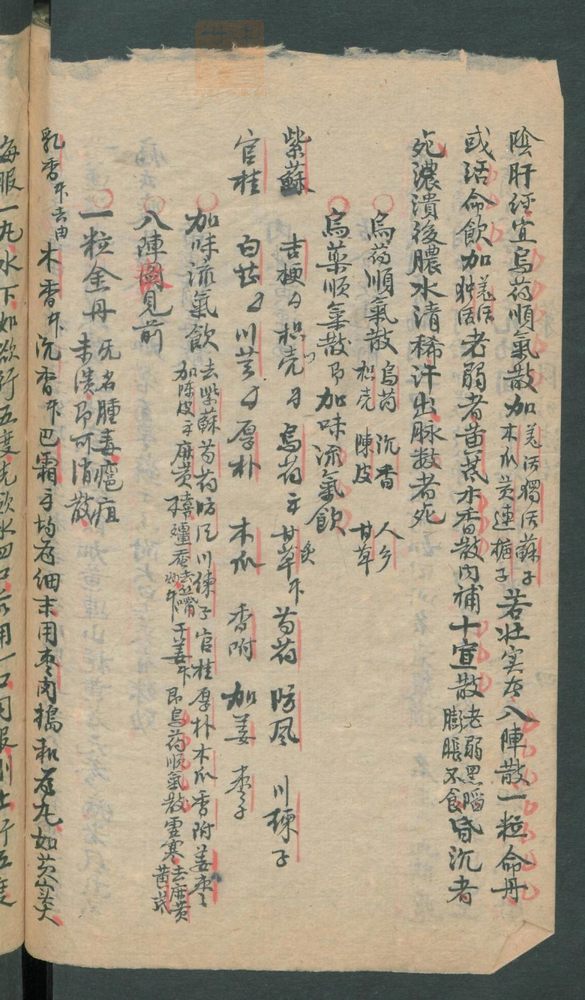 陰肝经宜烏药順氣散加羌活獨活蘇子木瓜黄連梔子若壮实者八陣散一粒命丹
或活命飲加羌活独活老弱者黄芪木香散内補十宣散老弱黑腦膨脹不食昏沉者
死濃潰後膿水清稀汗出脉数者死
烏药順氣散 烏药 沉香 人参 枳壳 陳皮 甘草
烏藥順氣散即加味流氣飲
紫蘇 吉梗 枳壳 烏药 甘草 芍药 防風 川楝子
官桂 白芷 川芎 厚朴 木瓜 香附 加姜枣
加味流氣飲去紫蘇芍药防风川楝子官桂厚朴木瓜香附姜枣 加陳皮 麻黄 僵蚕 干姜 即烏药順氣散 去麻黄
八陣圖見前
一粒金丹 无名腫毒癰疽未潰即可消散
乳香 去油 木香 沉香 巴霜 均為細末用枣肉搗和为丸如芡
每服一丸水下如欲行五度先飲水四口